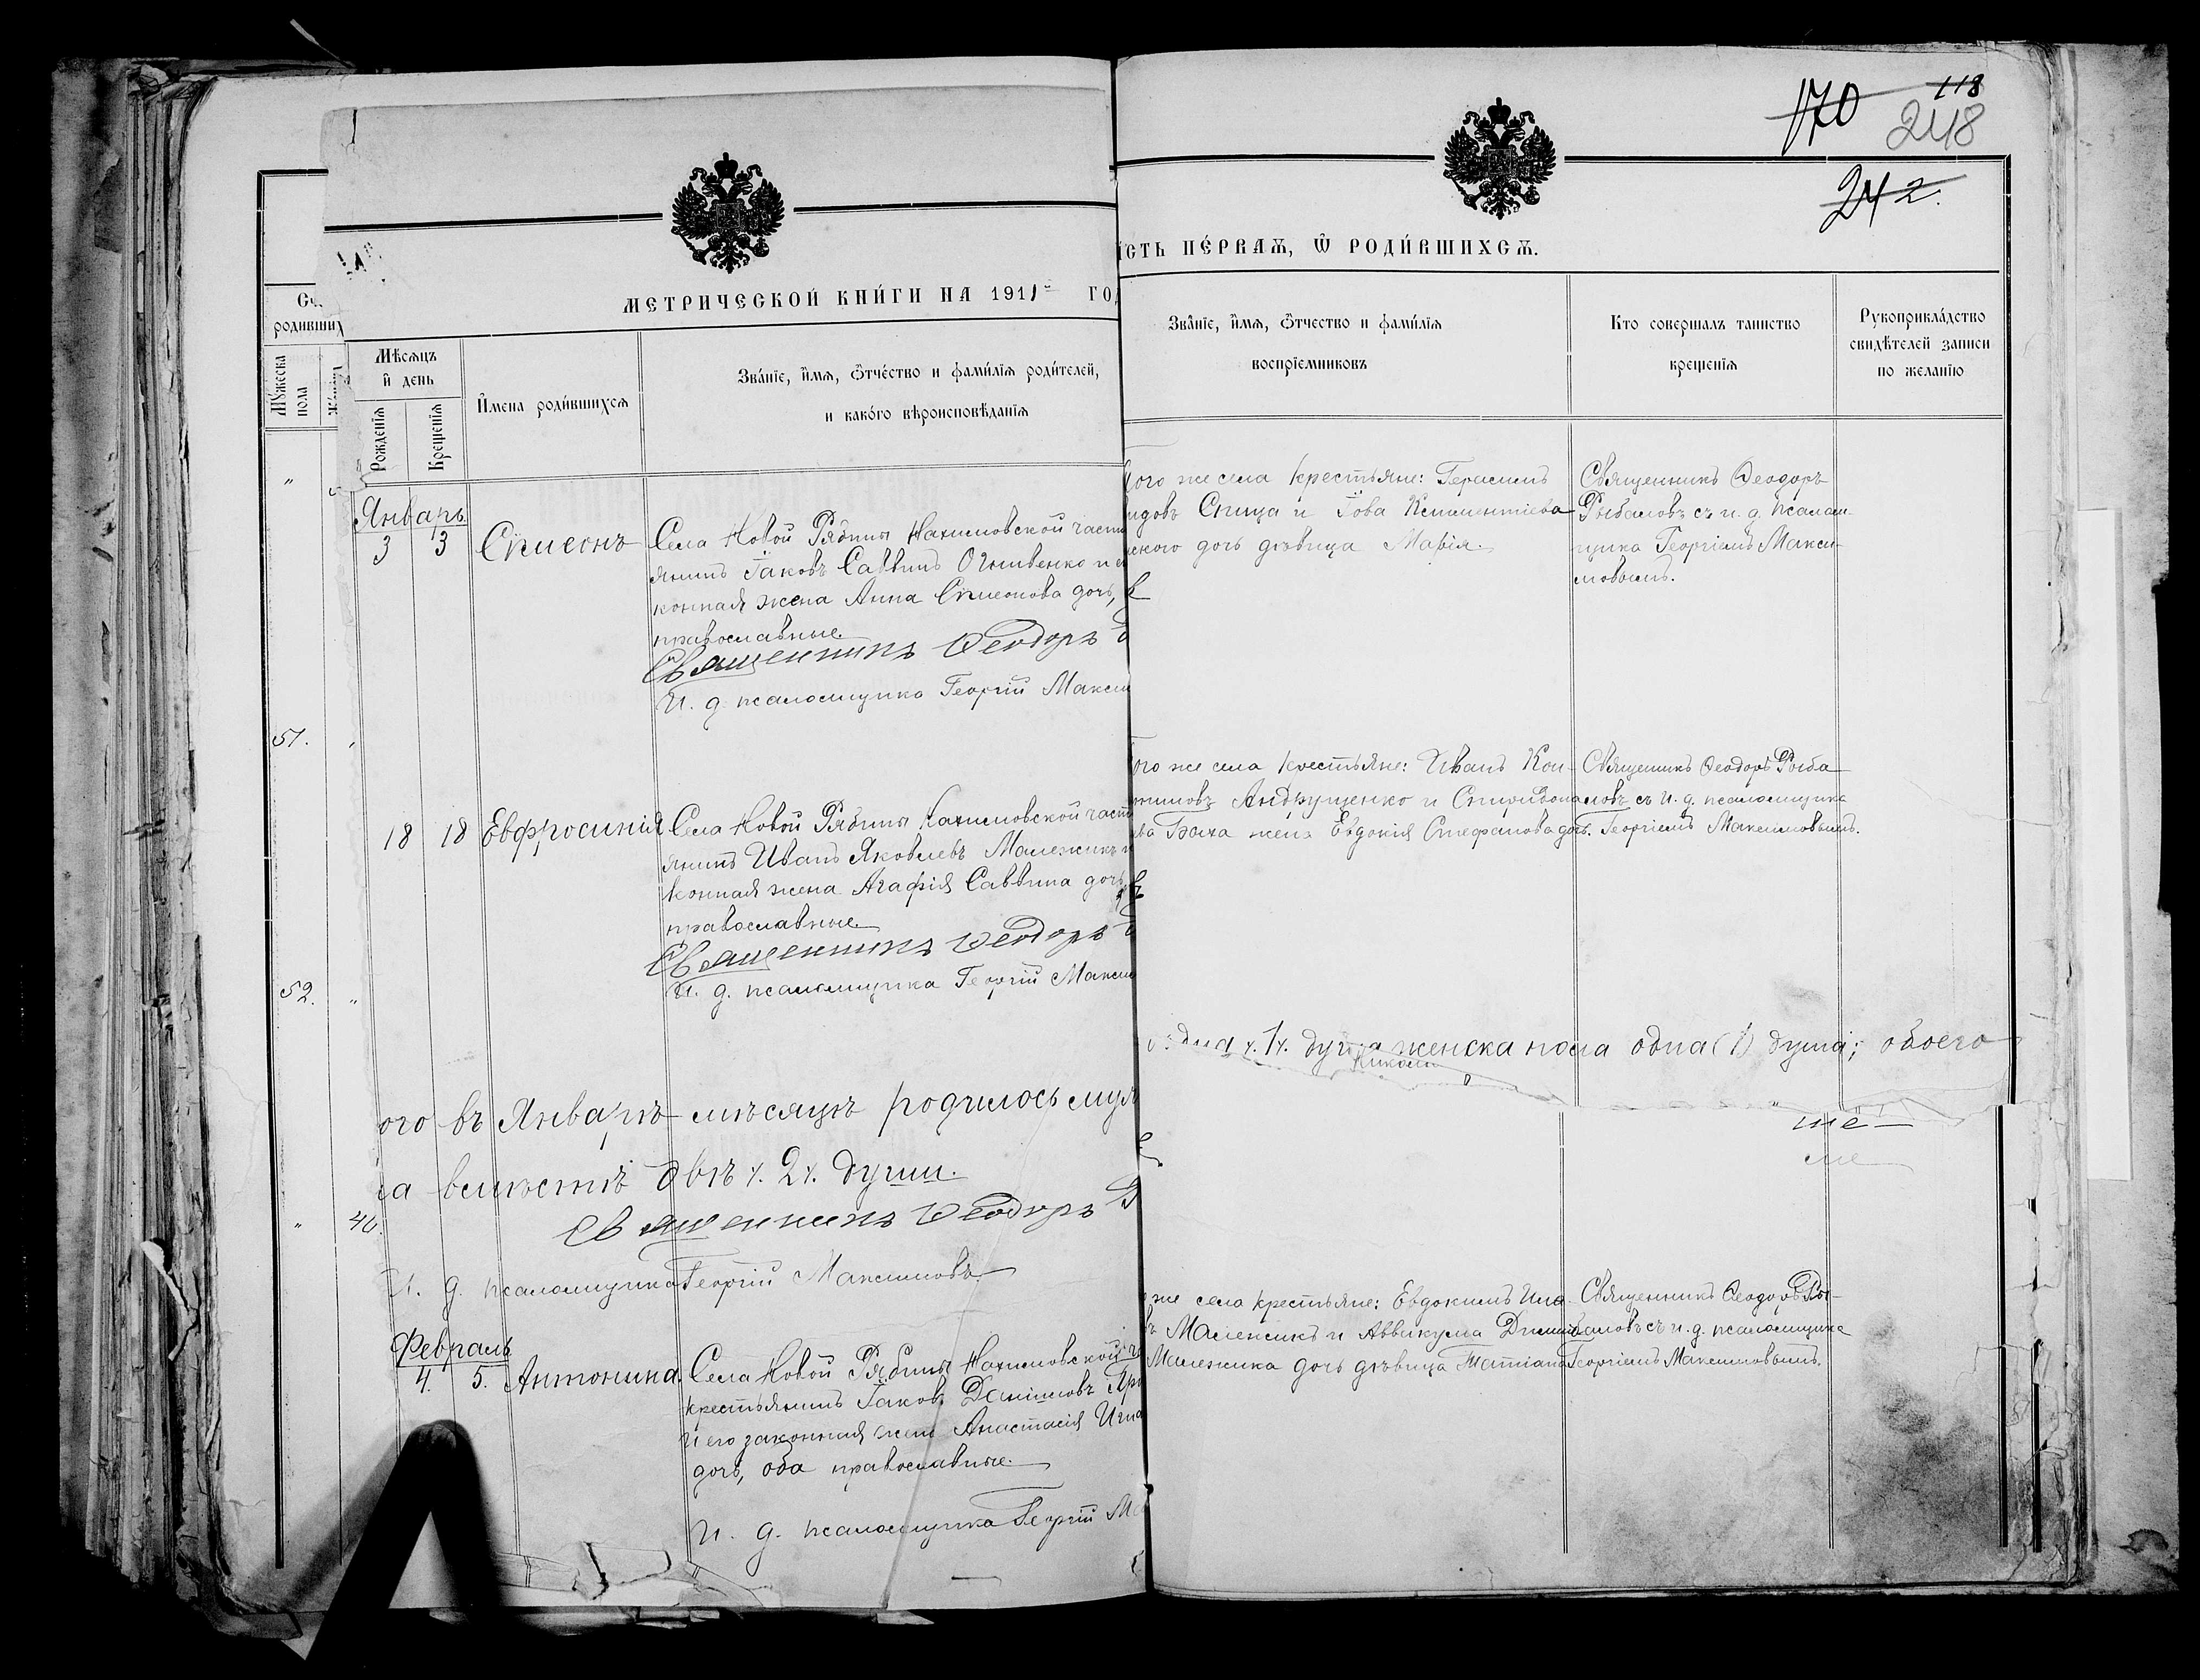 170
118
248
242.
МЕТРИЧЕСКОЙ КНИ́ГИ НА 1911й ГОД
ІСТЬ ПЕ́РВАѦ, Ѿ РОДИ́ВШИХСѦ.
родивших
Мꙋжеска пола
Мѣсяцъ и день
Рожденїѧ
Крещенїѧ
И҆мена роди́вшихсѧ
Зва́нїе, и҆мѧ, ѻ҆тче́ство и фами́лїѧ роди́телей,
и како́го вѣроисповѣ́данїѧ
Зва́нїе, и҆мѧ, ѻ҆тчество и фами́лїѧ
воспрїемниковъ
Кто совершалъ таинство
крещенїѧ
Рукоприкла́дство
свидѣтелей записи
по желанїю
Январь
3 3 Симеонъ
Села Новой Рябины Нахимовской части
янинъ Іаковъ Саввинъ Огнивенко и е
конная жена Анна Симеонова дочь,
православные.
Священникъ Ѳеодоръ
И. д. псаломщика Георгій Макси
того же села крестьяне: Герасимъ
идовъ Спица и Іова Климентіева
ского дочь дѣвица Марія.
Священникъ Ѳеодоръ
Рыбаловъ съ и. д. псалом-
щика Георгіемъ Макси-
мовымъ.
51.
18 18 Евфросинія
Села Новой Рябины Нахимовской част
янинъ Иванъ Яковлевъ Малежикъ и
конная жена Агафія Саввина дочь,
православные.
Священникъ Ѳеодоръ
И. д. псаломщика Георгій Макси
ого же села крестьяне: Иванъ Кон-
Андрущенко и Спиридона
ва жена Евдокія Стефанова дочь.
Священникъ Ѳеодоръ Рыба
ловъ съ и. д. псаломщика
Георгіемъ Максимовымъ.
52.
ого въ Январѣ мѣсяцѣ родилось муж
дна (1) душа женска пола одна (1) душа; обоего
ла вмѣстѣ двѣ (2) души.
Священникъ Ѳеодоръ Р
И. д. псаломщика Георгій Максимовъ
46.
Февраль
4. 5. Антонина.
Села Новой Рябины Нахимовской ч
крестьянинъ Іаковъ Даніиловъ
и его законная жена Анастасія Игна
дочь, оба православные.
И. д. псаломщика Георгій М
же села крестьяне: Евдокимъ Игна-
въ Малежикъ и Аввакума
Малежика дочь дѣвица Татіана
Священникъ Ѳеодоръ Ры-
баловъ съ и. д. псаломщика
Георгіемъ Максимовымъ.